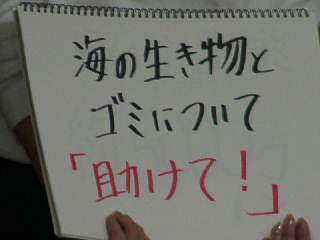 海の生き物と
ゴミについて
「助けて!」